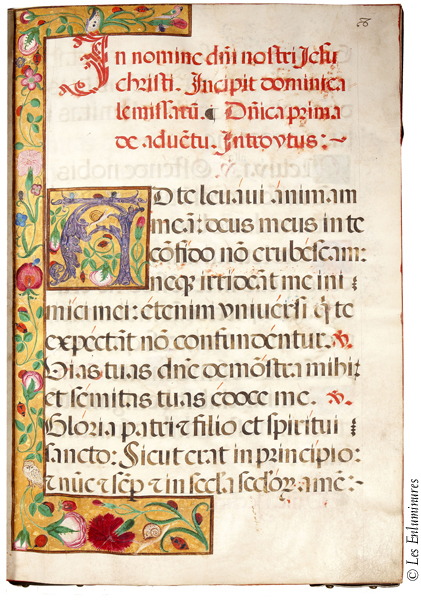 In nomine dñi nostri Jesu
christi. Incipit dominica
le missarũ. Dñica prima
de aduẽtu. Introytus:~
AD te leuaui animam
meã: deus meus in te
cõfido nõ erubescam:
neqꝫ irrideant me ini
mici mei: etenim vniuersi q̃ te
expectãt nõ confundentur. ℣.
Vias tuas dñe demõstra mihi:
et semitas tuas edoce me. ℣.
Gloria patri ⁊ filio et spiritui
sancto: Sicut erat in principio:
⁊ nũc ⁊ sẽp̃ ⁊ in secĺa secĺoꝝ amẽ:~
© Les Enluminures